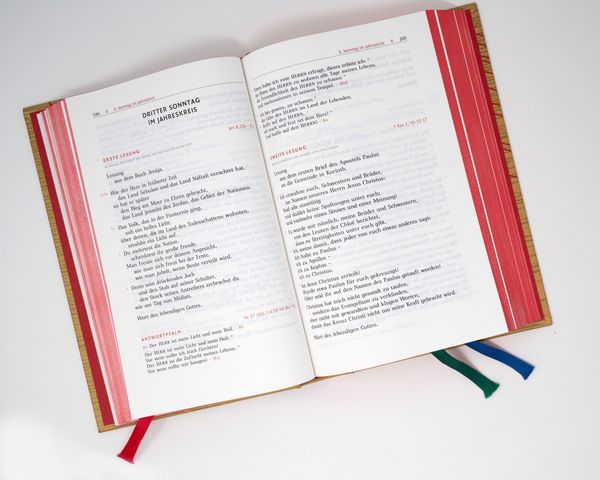 244 A 3. Sonntag im Jahreskreis
DRITTER SONNTAG
IM JAHRESKREIS
ERSTE LESUNG
Jes 8,23b
Lesung
aus dem Buch Jesaja.
Wie der HERR in früherer Zeit
das Land Sebulon und das Land Náftali verachtet hat,
so hat er später
den Weg am Meer zu Ehren gebracht,
das Land jenseits des Jordan, das Gebiet der Nationen.
Das Volk, das in der Finsternis ging,
sah ein helles Licht;
über denen, die im Land des Todesschattens wohnten,
strahlte ein Licht auf.
Du mehrtest die Nation,
schenktest ihr große Freude.
Man freute sich vor deinem Angesicht,
wie man sich freut bei der Ernte,
wie man jubelt, wenn Beute verteilt wird.
Denn sein drückendes Joch
und den Stab auf seiner Schulter,
den Stock seines Antreibers zerbrachst du
wie am Tag von Mídian.
Wort des lebendigen Gottes.
ANTWORTPSALM
Ps 27 (26), 1.4.13–14
Kv Der HERR ist mein Licht und mein Heil. – Kv
Der HERR ist mein Licht und mein Heil: *
Vor wem sollte ich mich fürchten?
Der HERR ist die Zuflucht meines Lebens: *
Vor wem sollte mir bangen? – (Kv)
3. Sonntag im Jahreskreis A 245
Eines habe ich vom HERRN erfragt, dieses erbitte ich: *
im Haus des HERRN zu wohnen alle Tage meines Lebens;
die Freundlichkeit des HERRN zu schauen *
und nachzusinnen in seinem Tempel. – (Kv)
bin gewiss, zu schauen *
die Güte des HERRN im Land der Lebenden.
Hoffe auf den HERRN,
sei stark und fest sei dein Herz! *
Und hoffe auf den HERRN! – Kv
ZWEITE LESUNG
1 Kor 1, 10–13.17
Lesung
aus dem ersten Brief des Apostels Paulus
an die Gemeinde in Korínth.
Ich ermahne euch, Schwestern und Brüder,
im Namen unseres Herrn Jesus Christus:
Seid alle einmütig
und duldet keine Spaltungen unter euch;
seid vielmehr eines Sinnes und einer Meinung!
Es wurde mir nämlich, meine Brüder und Schwestern,
von den Leuten der Chloë berichtet,
dass es Streitigkeiten unter euch gibt.
Ich meine damit, dass jeder von euch etwas anderes sagt:
Ich halte zu Paulus –
ich zu Apóllos –
ich zu Kephas –
ich zu Christus.
Ist denn Christus zerteilt?
Wurde etwa Paulus für euch gekreuzigt?
Oder seid ihr auf den Namen des Paulus getauft worden?
Christus hat mich nicht gesandt zu taufen,
sondern das Evangelium zu verkünden,
aber nicht mit gewandten und klugen Worten,
damit das Kreuz Christi nicht um seine Kraft gebracht wird.
Wort des lebendigen Gottes.